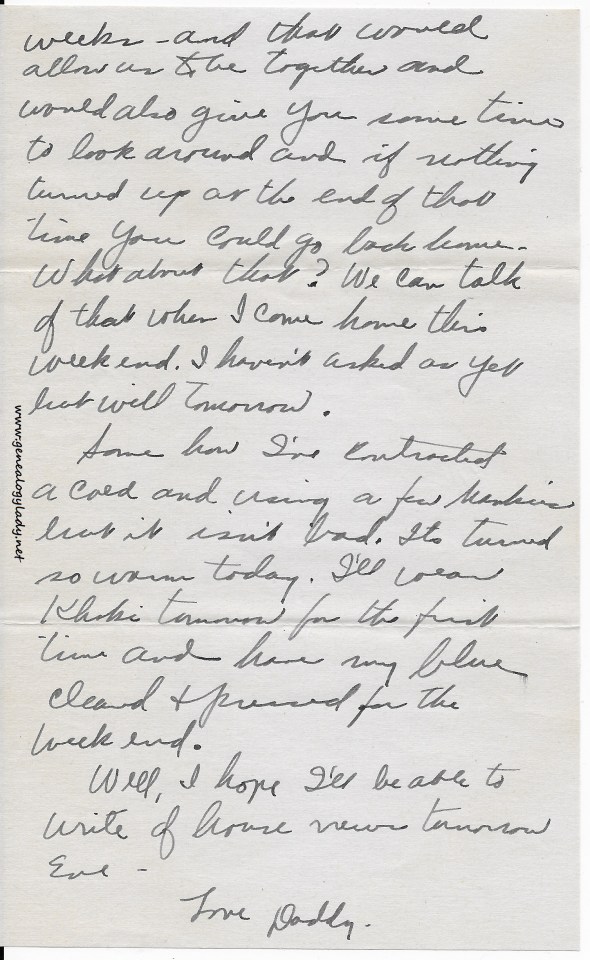 weeks - and that would
allow us to be together and
would also give you some time
to look around and if nothing
turned up at the end of that
time you could go back home.
What about that? We can talk
of that when I come home this
week end. I haven't asked as yet
but will tomorrow.
Some how I've contracted
a cold and using a few hankies
but it isn't bad. Its turned
so warm today. I'll wear
Khaki tomorrow for the first
time and have my blue
cleand & pressed for the
week end.
Well, I hope I'll be able to
write of house news tomorrow
Eve -
Love Daddy.
www.genealogylady.net